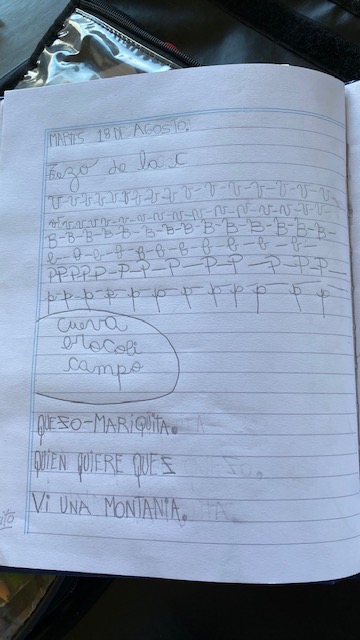 MARTES 18 DE AGOSTO.
de la c
V-V-V-V-V-V-V-V-V-V-V-V-V-V-V
v-v-v-v-v-v-v-v-v-v-v-v-v-v
B-B-B-B-B-B-B-B-B-B-B-B-B
b-b-b-b-b-b-b-b-b-b-b-b
PPPPP-P-P-P-P-P-P-P-P
p-p-p-p-p-p-p-p-p-p-p-p
cueva
brocoli
campo
QUEZO-MARIQUITA.
QUIEN QUIERE QUES
VI UNA MONTANIA.